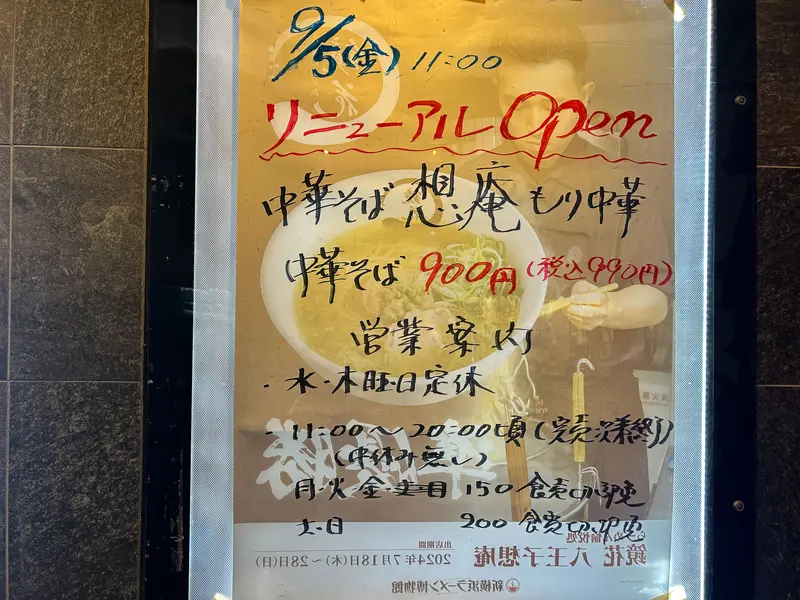 9/5(金) 11:00
リニューアルOpen
中華そば 想庵 もり中華
中華そば 900円(税込990円)
営業案内
・水・木曜日定休
・11:00〜20:00頃(完売次第終了)
(中休み無し)
月・火・金 150食売り切れ
土・日 200食売り切れ
鏡花 八王子想庵
出店期間
2024年7月18日(木)〜28日(日)
新横浜ラーメン博物館